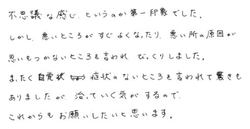 不思議な感じ、というのが第一印象でした。
しかし、悪いところがすぐよくなったり、悪い所の原因が
思いもつかないところを言われ びっくりしました。
また、自覚状 症状のないところを言われて驚きも
ありましたが 治っていく気がするので
これからもお願いしたいと思います。